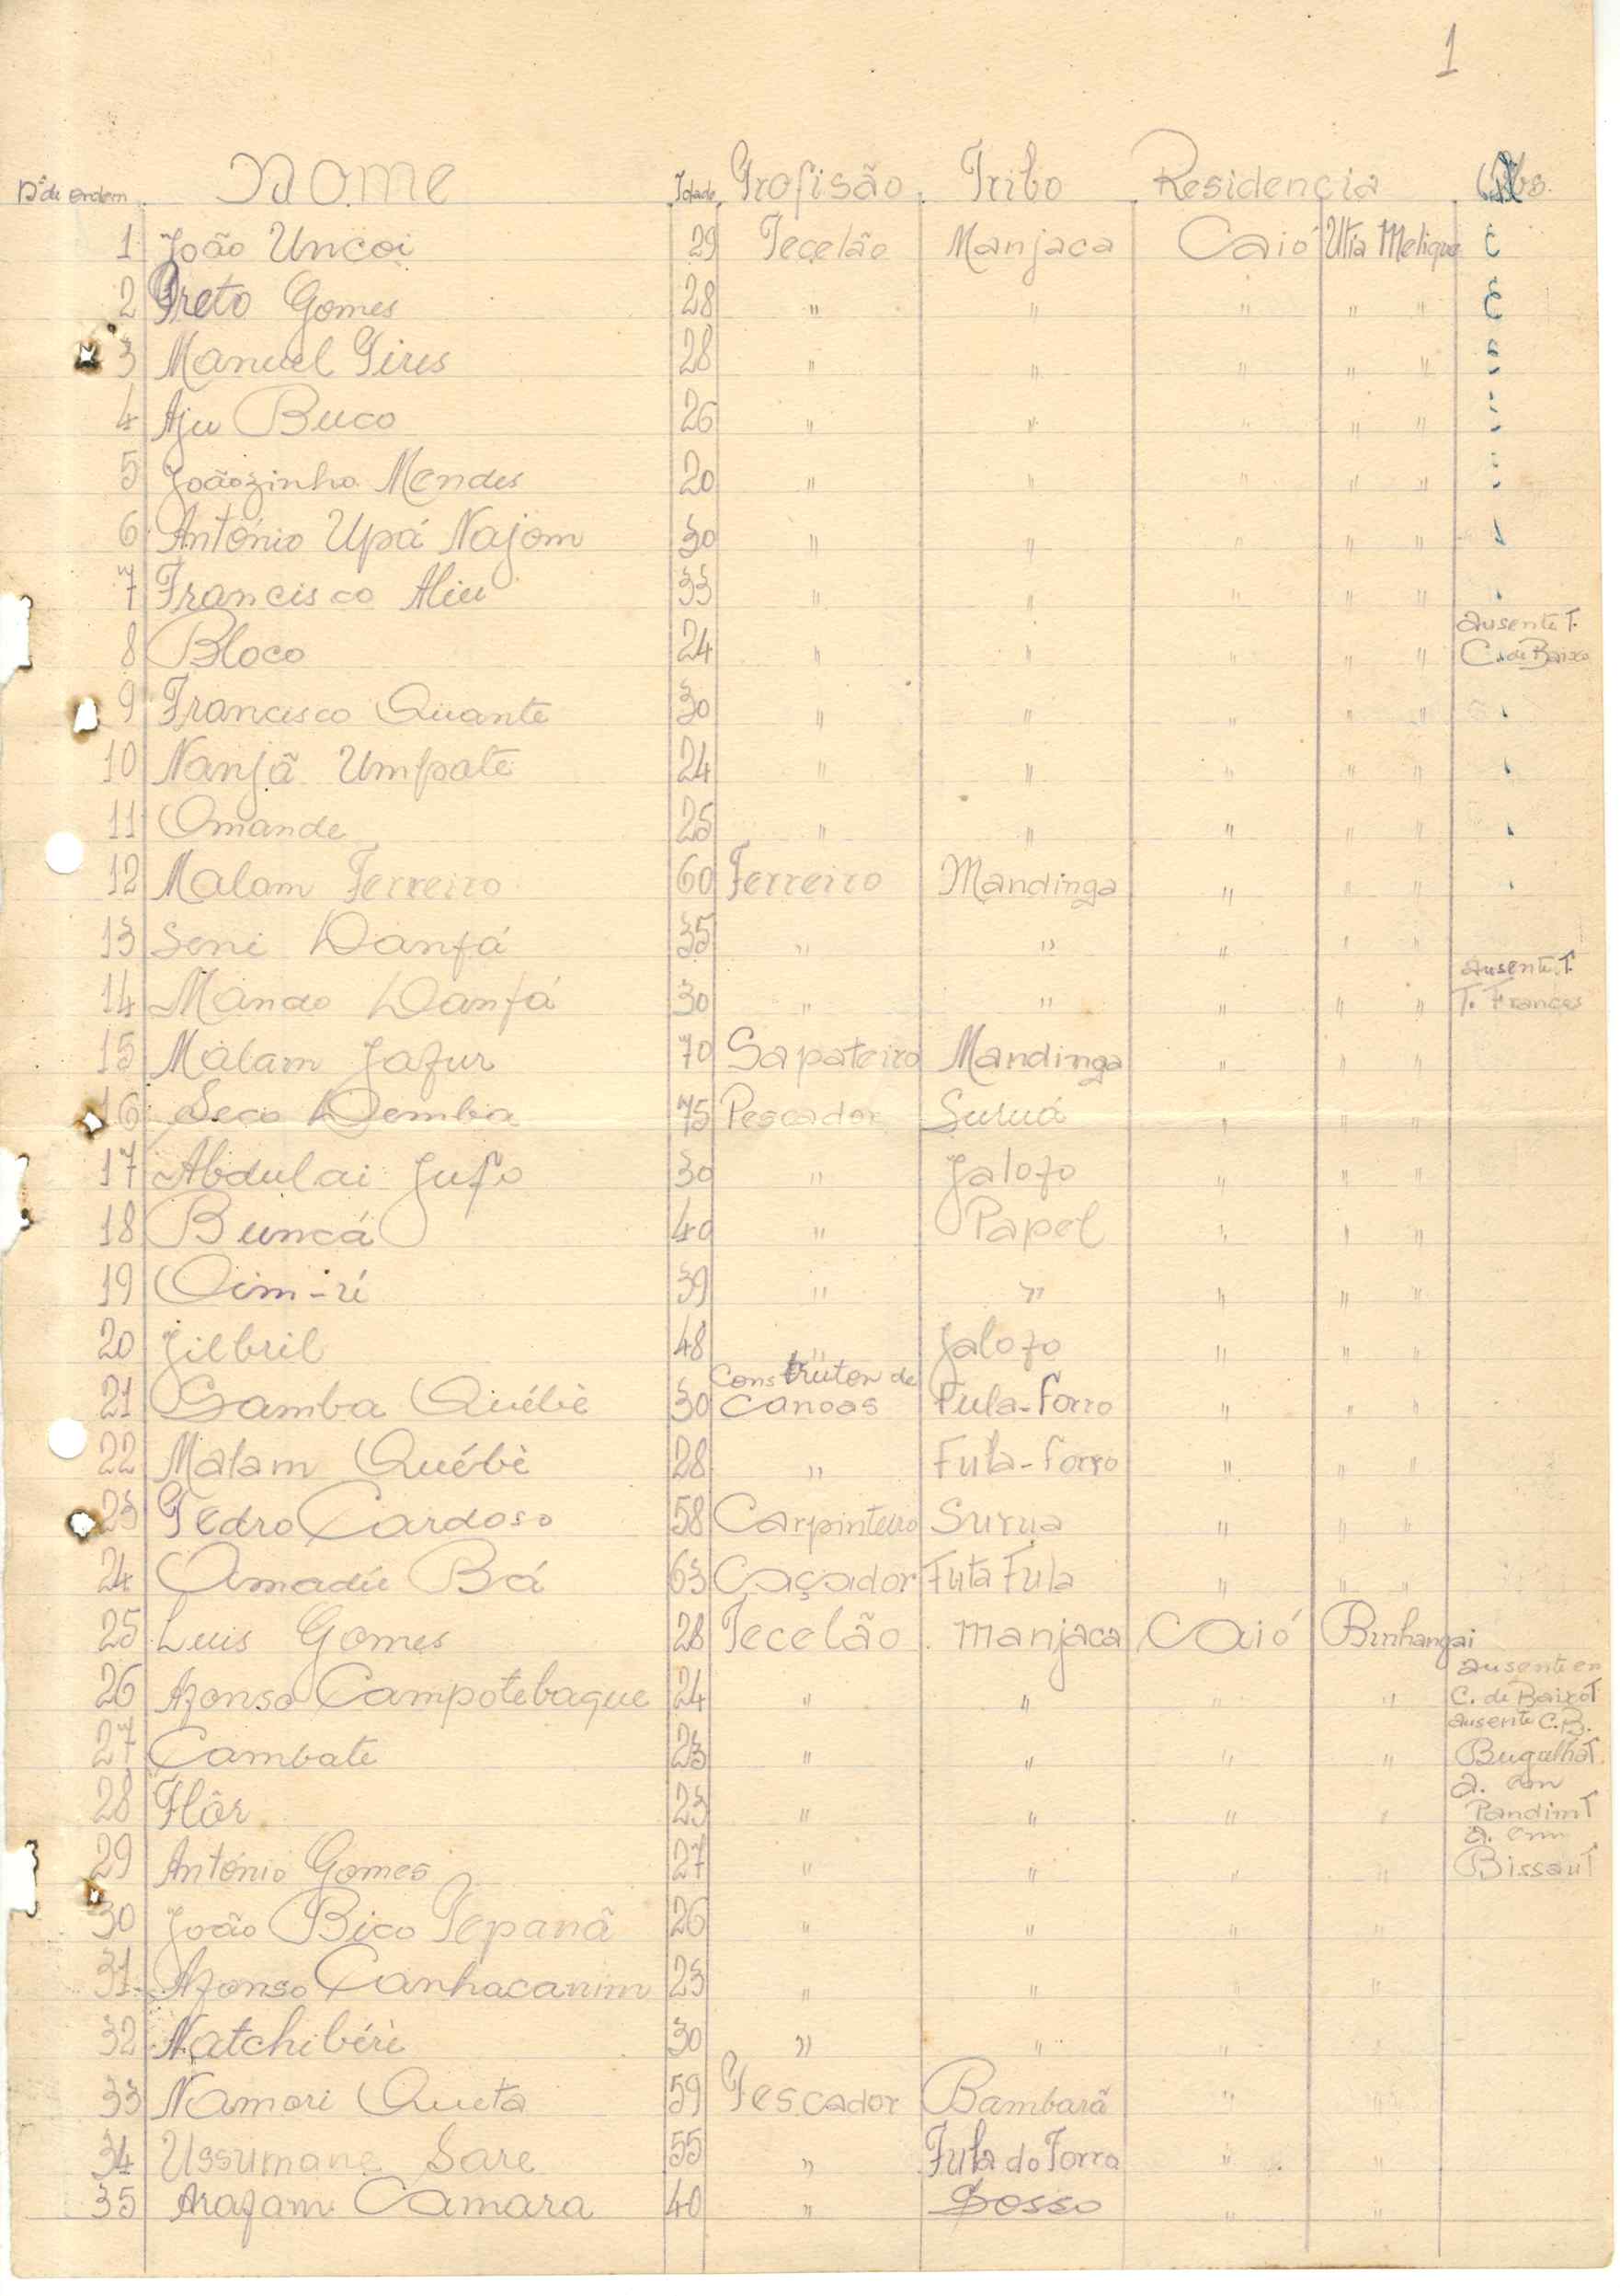 1
Nº de ordem Nome Idade Profisão Tribo Residencia Obs.
1 João Uncoi 29 Tecelão Manjaca Caió Utia Melique
2 Preto Gomes 28 " " " " "
3 Manuel Pires 28 " " " " "
4 Aju Buco 26 " " " " "
5 Joãozinho Mendes 20 " " " " "
6 António Upá Najom 30 " " " " "
7 Francisco Aliu 33 " " " " "
ausente T.
8 Bloco 24 " " " " " C. de Baixo
9 Francisco Quante 30 " " " " "
10 Nanjã Umpate 24 " " " " "
11 Omande 25 " " " " "
12 Malam Ferreiro 60 Ferreiro Mandinga " " "
13 Seni Danfá 35 " " " " "
ausente T.
14 Mando Danfá 30 " " " " " T. Frances
15 Malam Jafur 70 Sapateiro Mandinga " " "
16 Seco Demba 75 Pescador Suruá " " "
17 Abdulai Jufo 30 " Jalofo " " "
18 Buncá 40 " Papel " " "
19 Oim-ri 39 " " " " "
20 Jilbril 48 " Jalofo " " "
Construtor de
21 Samba Québè 30 canoas Fula-Forro " " "
22 Malam Québè 28 " Fula-forro " " "
23 Pedro Cardoso 58 Carpinteiro Surua " " "
24 Amadú Bá 63 Caçador Futa Fula " " "
25 Luis Gomes 28 Tecelão Manjaca Caió Binhangai
ausente en
26 Afonso Campotebaque 24 " " " " C. de Baixo T
ausente C.B.
27 Cambate 23 " " " " Bugulha T.
a. em
28 Flôr 23 " " " " Pandim T
a. em
29 António Gomes 27 " " " " Bissau T
30 João Bico Pepanã 26 " " " "
31 Afonso Canhacanim 23 " " " "
32 Natchibéri 30 " " " "
33 Namori Queta 59 Pescador Bambarã " "
34 Ussumane Sare 55 " Fula do Forro " "
35 Arafam Camara 40 " Sosso " "